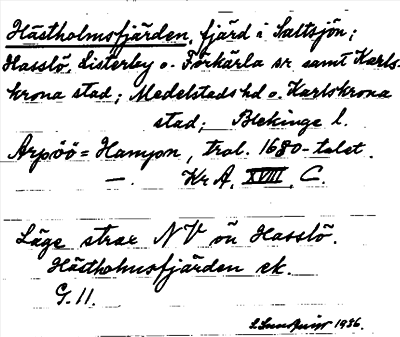 Hästholmsfjärden, fjärd i Saltsjön;
Hasslö, Listerby o. Förkärla sr samt Karls-
krona stad; Medelstads hd o. Karlskrona
stad; Blekinge l.
Arpöö = Hamjon, trol. 1680-talet.
—. Kr A, XVIII, C.
Läge strax NV ön Hasslö.
Hästholmsfjärden ek.
G. 11.
S. Sundquist 1936.